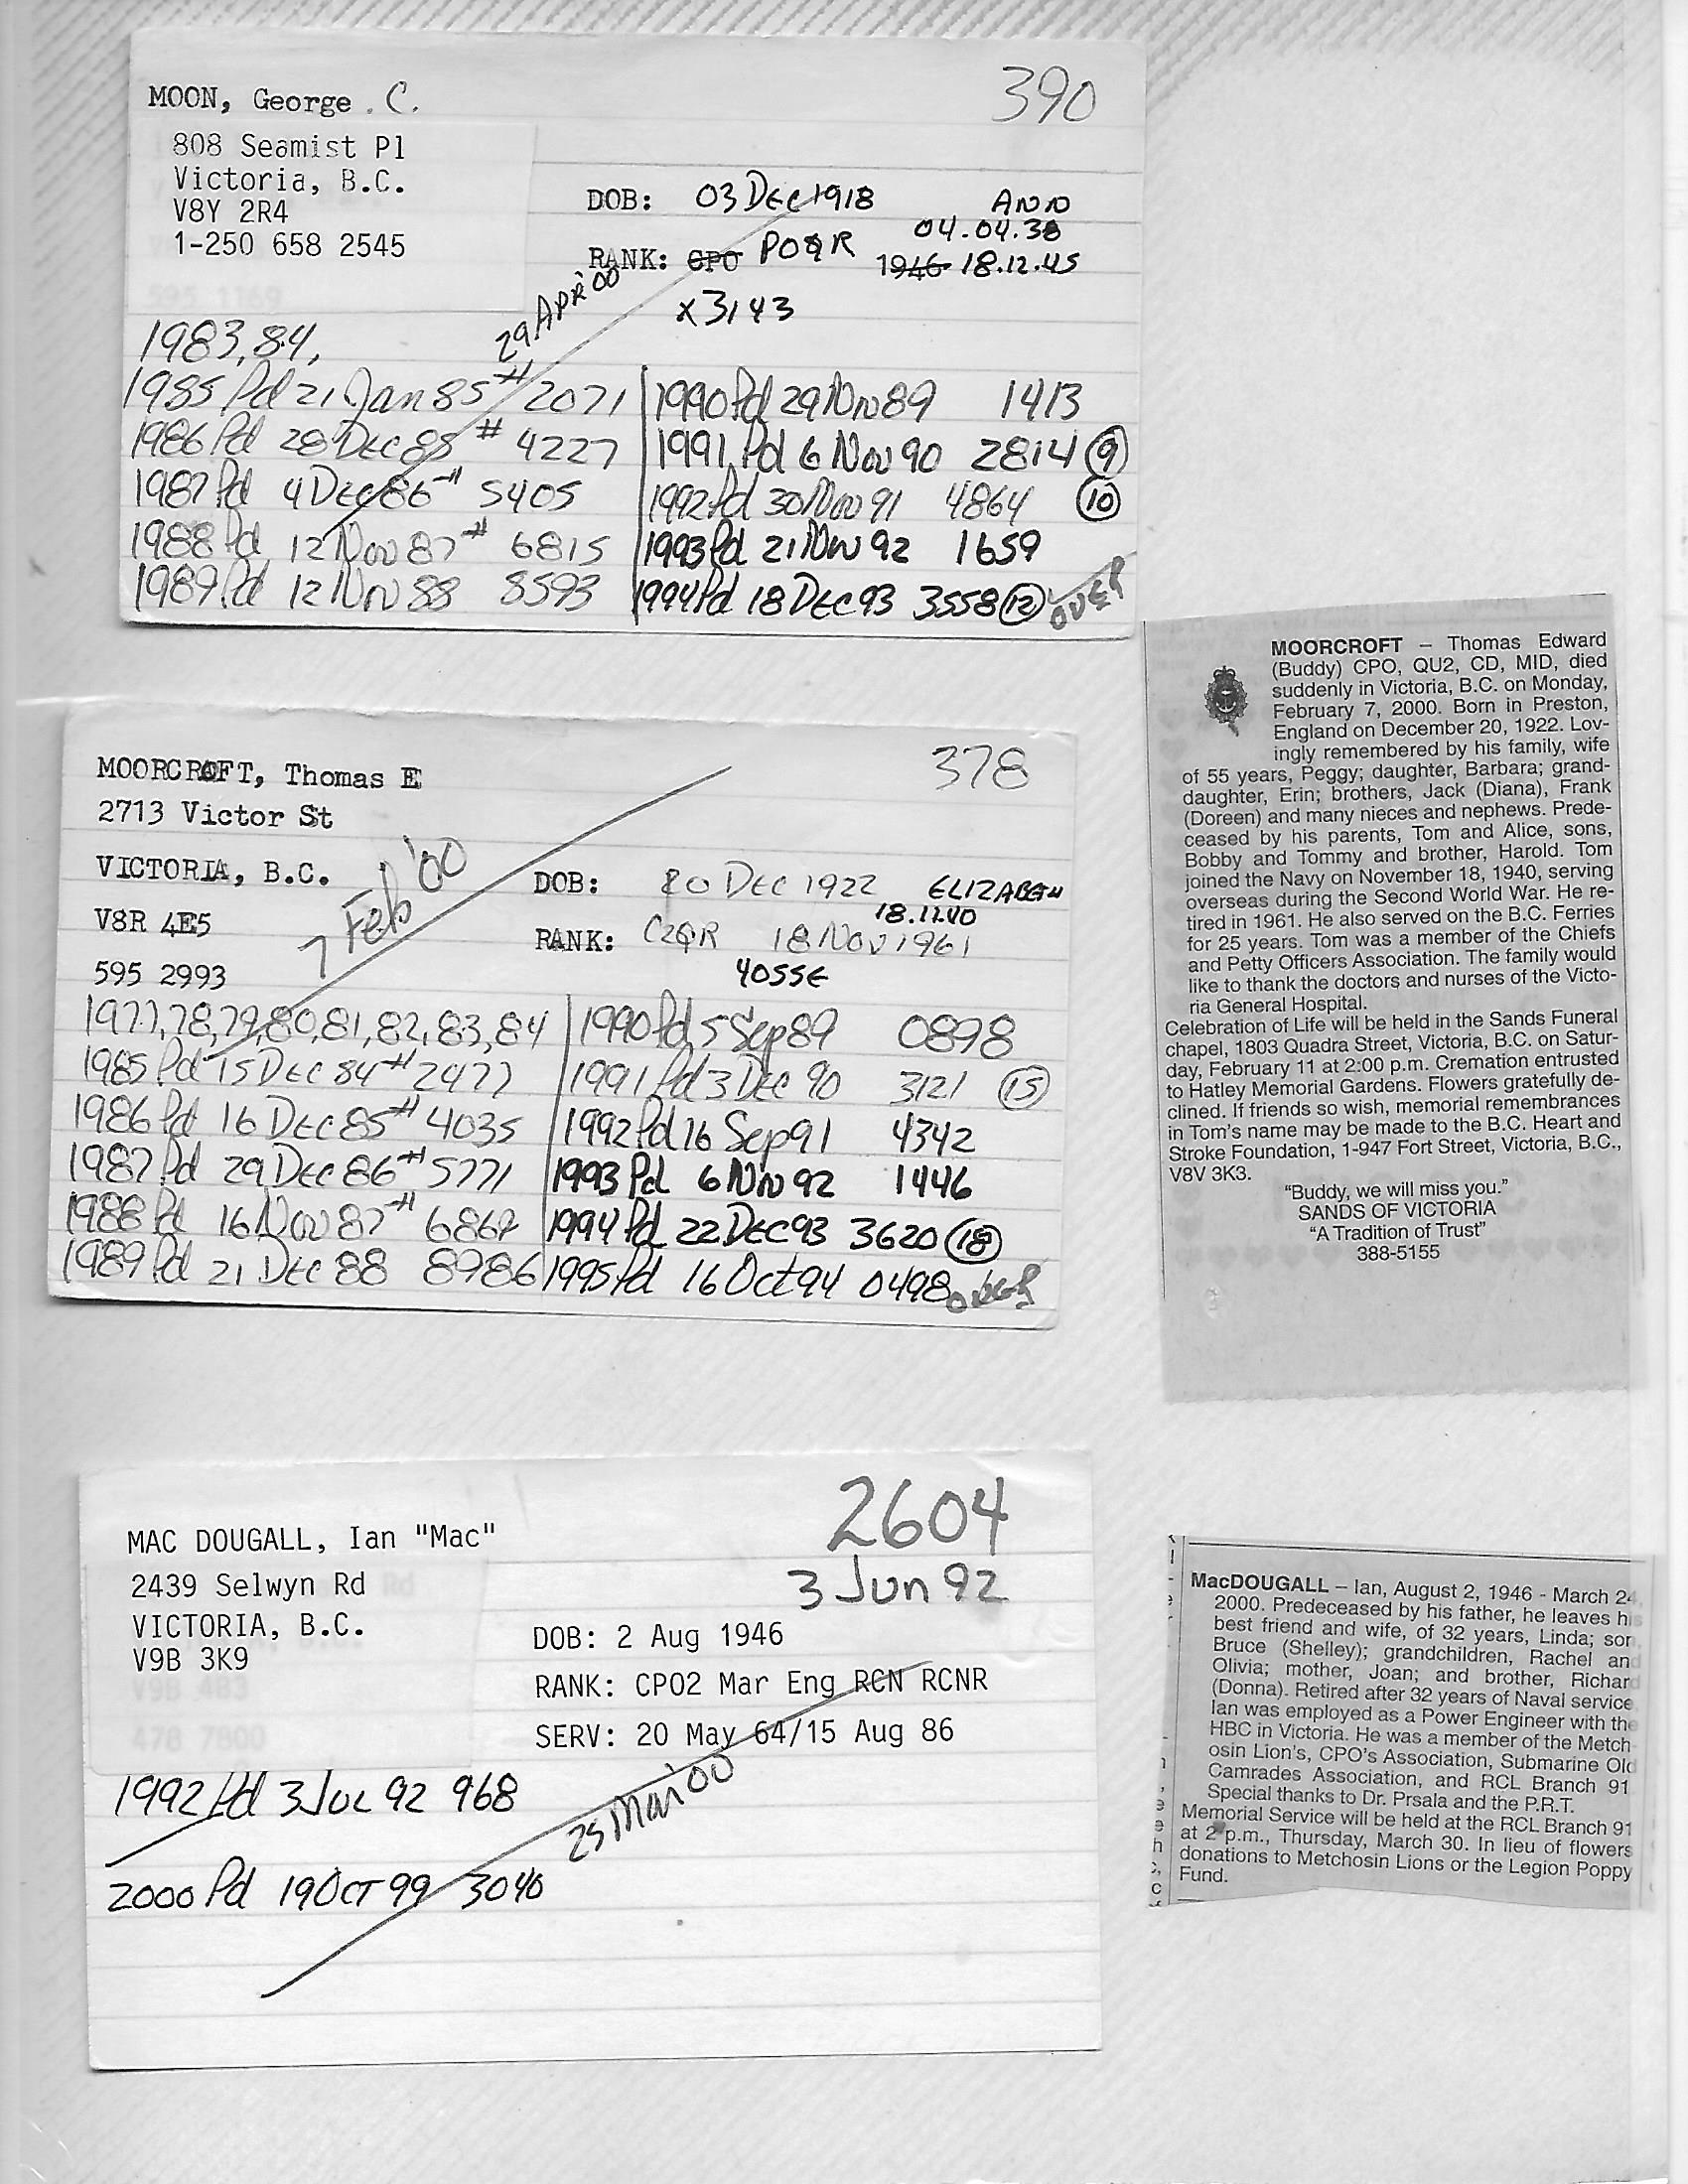 MOON, George . C.
390
808 Seamist Pl
Victoria, B.C.
V8Y 2R4
1-250 658 2545
595 1169
DOB: 03 DEC 1918 ANN
04.04.38
RANK: CPO PO2R 1946 18.12.45
x3143
29 APR '00
1983, 84,
1985 Pd 21 Jan 85 # 2071
1986 Pd 28 DEC 85 # 4227
1987 Pd 4 DEC 86 # 5405
1988 Pd 12 Nov 87 # 6815
1989 Pd 12 Nov 88 8593
1990 Pd 29 Nov 89 1413
1991 Pd 6 Nov 90 2814 (9)
1992 Pd 30 Nov 91 4864 (10)
1993 Pd 21 Nov 92 1659
1994 Pd 18 DEC 93 3558 (12) OVER
MOORCROFT, Thomas E
378
2713 Victor St
VICTORIA, B.C.
V8R 4E5
595 2993
7 Feb '00
DOB: 20 DEC 1922 ELIZABETH
18.11.40
RANK: C2QR 18 NOV 1961
4055E
1977, 78, 79, 80, 81, 82, 83, 84
1985 Pd 15 DEC 84 # 2477
1986 Pd 16 DEC 85 # 4035
1987 Pd 29 DEC 86 # 5771
1988 Pd 16 Nov 87 # 6862
1989 Pd 21 DEC 88 8986
1990 Pd 5 Sep 89 0898
1991 Pd 3 DEC 90 3121 (15)
1992 Pd 16 Sep 91 4342
1993 Pd 6 Nov 92 1446
1994 Pd 22 DEC 93 3620 (18)
1995 Pd 16 Oct 94 0498 OVER
MOORCROFT – Thomas Edward
(Buddy) CPO, QU2, CD, MID, died
suddenly in Victoria, B.C. on Monday,
February 7, 2000. Born in Preston,
England on December 20, 1922. Lov-
ingly remembered by his family, wife
of 55 years, Peggy; daughter, Barbara; grand-
daughter, Erin; brothers, Jack (Diana), Frank
(Doreen) and many nieces and nephews. Prede-
ceased by his parents, Tom and Alice, sons,
Bobby and Tommy and brother, Harold. Tom
joined the Navy on November 18, 1940, serving
overseas during the Second World War. He re-
tired in 1961. He also served on the B.C. Ferries
for 25 years. Tom was a member of the Chiefs
and Petty Officers Association. The family would
like to thank the doctors and nurses of the Victo-
ria General Hospital.
Celebration of Life will be held in the Sands Funeral
chapel, 1803 Quadra Street, Victoria, B.C. on Satur-
day, February 11 at 2:00 p.m. Cremation entrusted
to Hatley Memorial Gardens. Flowers gratefully de-
clined. If friends so wish, memorial remembrances
in Tom's name may be made to the B.C. Heart and
Stroke Foundation, 1-947 Fort Street, Victoria, B.C.,
V8V 3K3.
"Buddy, we will miss you."
SANDS OF VICTORIA
"A Tradition of Trust"
388-5155
MAC DOUGALL, Ian "Mac"
2604
3 Jun 92
2439 Selwyn Rd
VICTORIA, B.C.
V9B 3K9
V9B 4B3
478 7800
DOB: 2 Aug 1946
RANK: CPO2 Mar Eng RCN RCNR
SERV: 20 May 64/15 Aug 86
25 Mar '00
1992 Pd 3 JUL 92 968
2000 Pd 19 OCT 99 3040
MacDOUGALL – Ian, August 2, 1946 - March 24,
2000. Predeceased by his father, he leaves his
best friend and wife, of 32 years, Linda; son,
Bruce (Shelley); grandchildren, Rachel and
Olivia; mother, Joan; and brother, Richard
(Donna). Retired after 32 years of Naval service
Ian was employed as a Power Engineer with the
HBC in Victoria. He was a member of the Metch-
osin Lion's, CPO's Association, Submarine Old
Camrades Association, and RCL Branch 91
Special thanks to Dr. Prsala and the P.R.T.
Memorial Service will be held at the RCL Branch 91
at 2 p.m., Thursday, March 30. In lieu of flowers
donations to Metchosin Lions or the Legion Poppy
Fund.